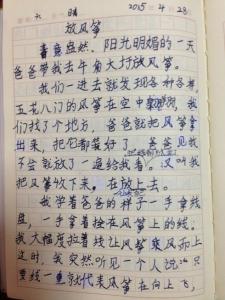 六 晴 2015 4 28
放风筝
春意盎然、阳光明媚的一天
爸爸带我去牛角大圩放风筝。
我们一进去就发现各种各样,
五花八门的风筝在空中 我
们找了个地方,爸爸就把风筝拿
出来,把它都装好了 爸爸见我
不会就放了一遍给我看。又叫我
把风筝放下来,在放上去。
我学着爸爸的样子一手拿线
盘,一手拿拴在风筝上的线。
我大幅度拉着线让风筝乘风而上
这时,我突然听见一个人说:“只
要线一重就代表风筝在向上飞,